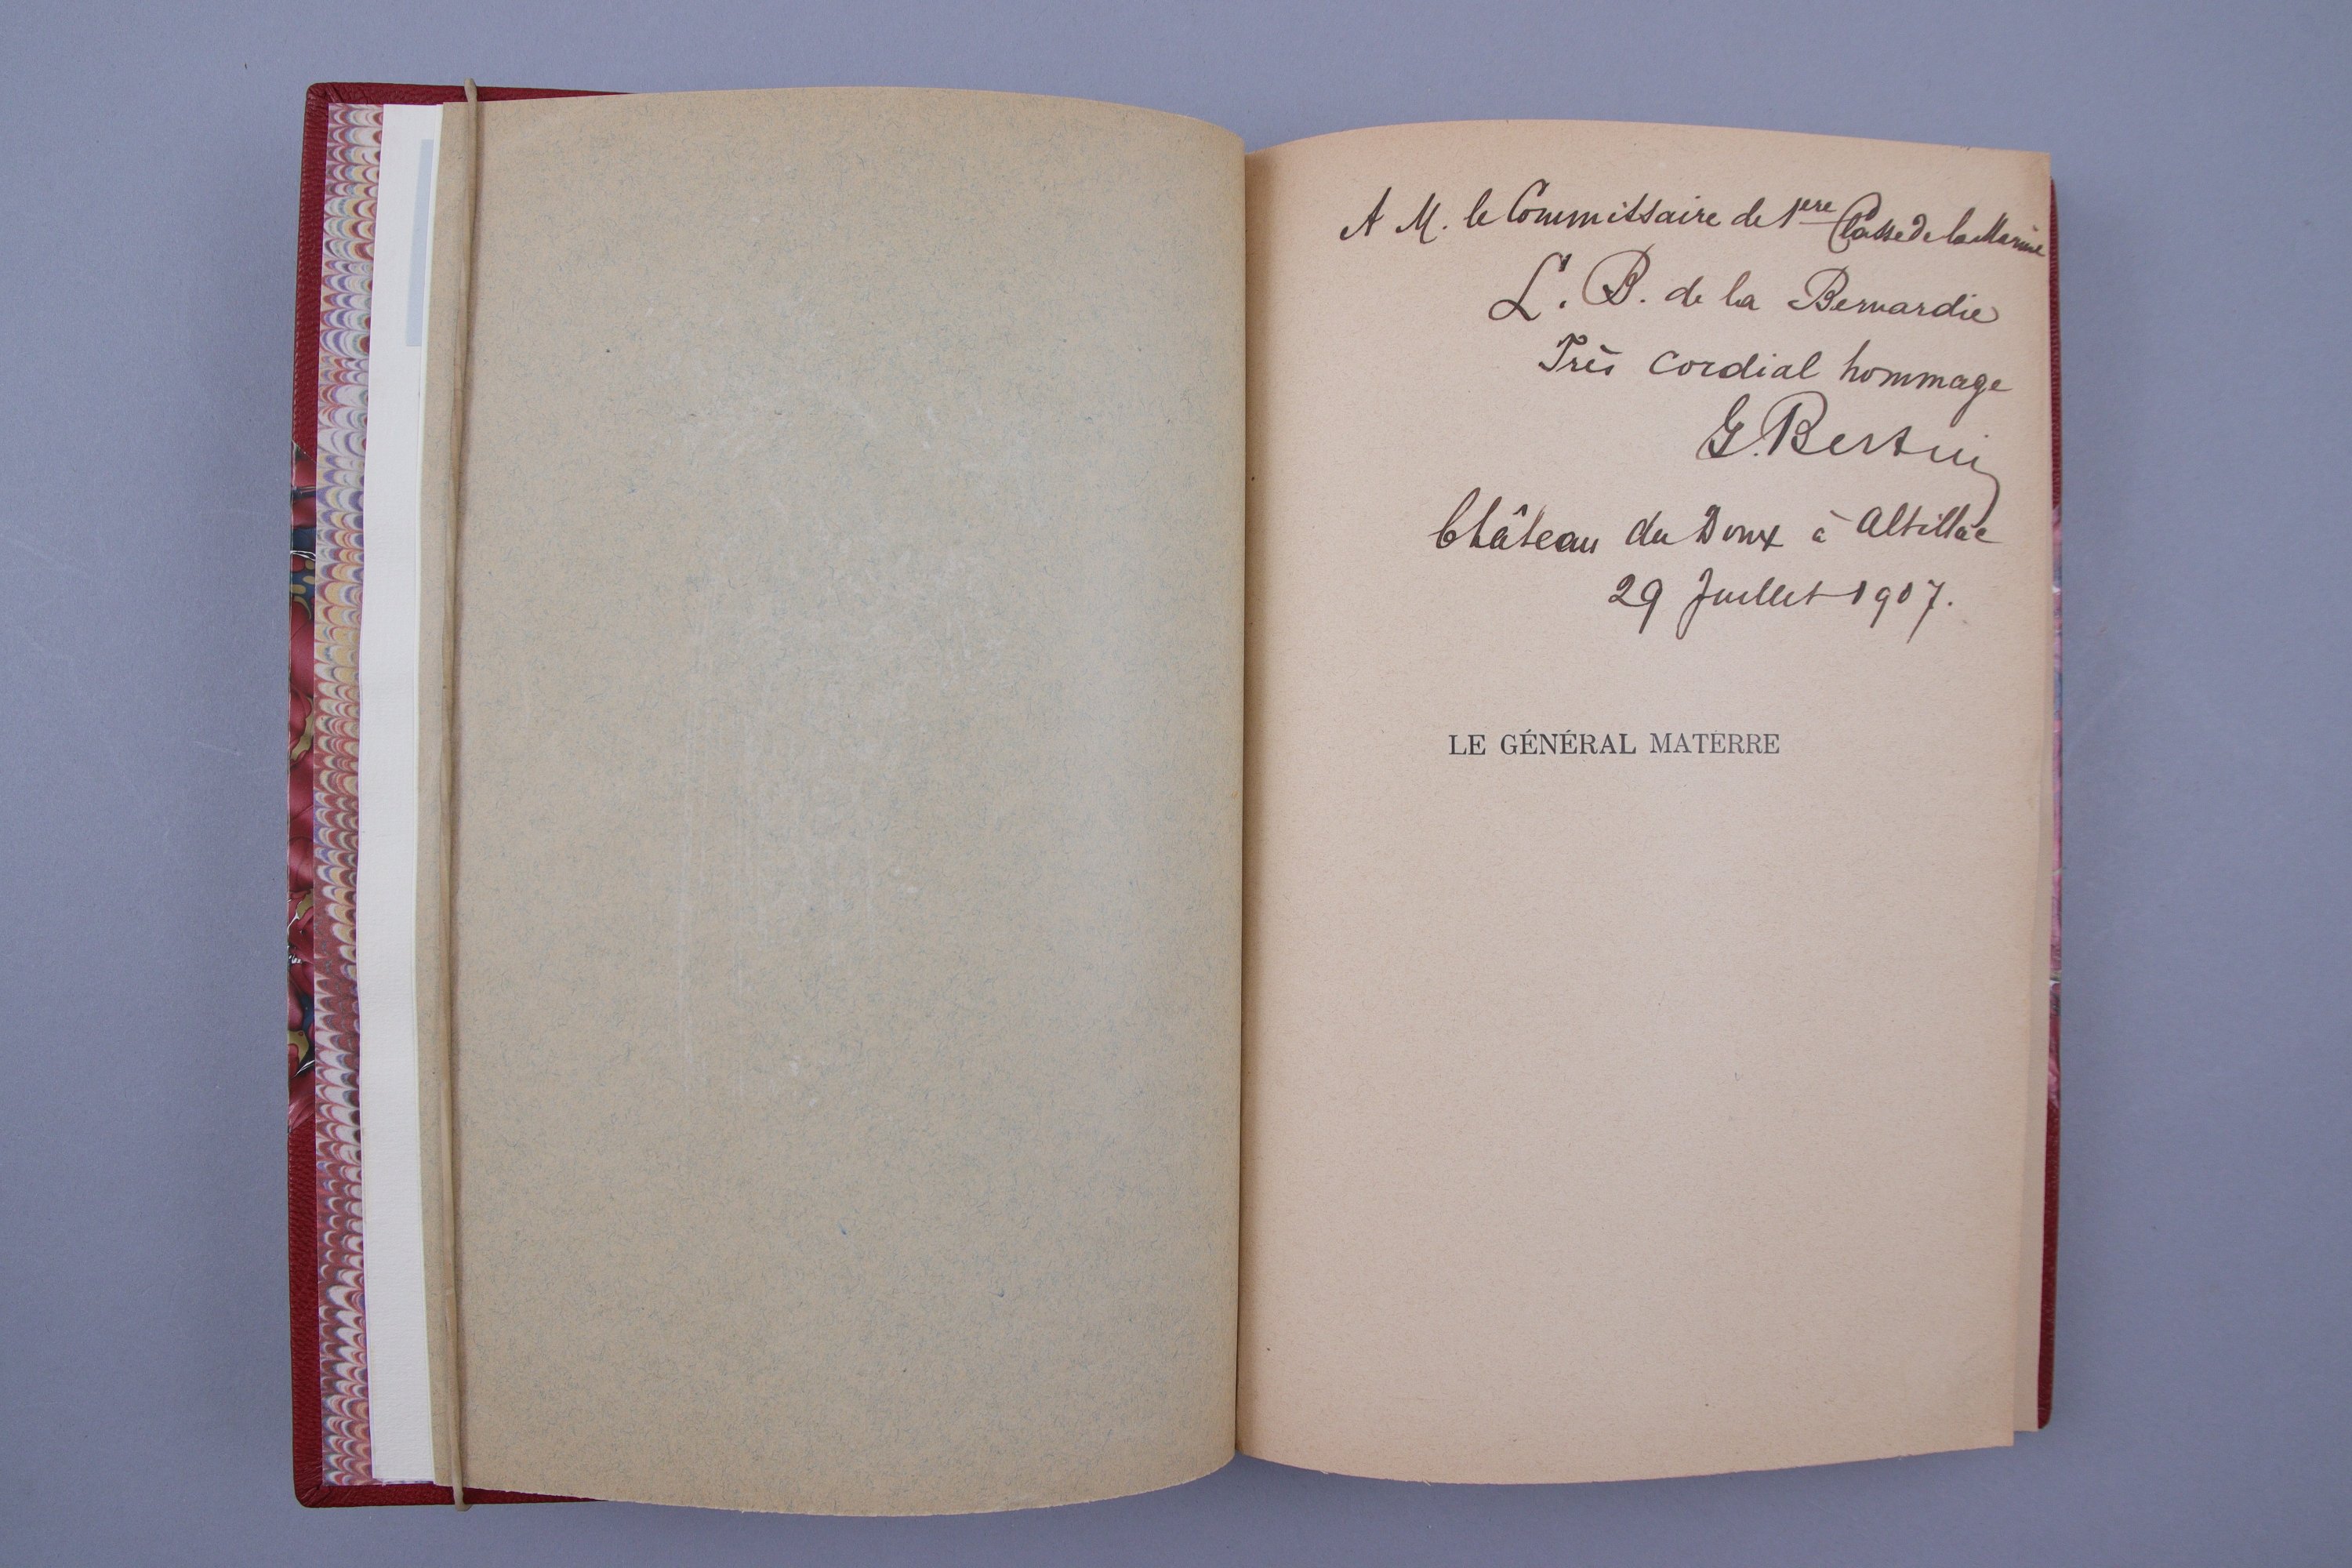 A M. le Commissaire de 1ere Classe de la Marine
L. B. de la Bernardie
Très cordial hommage
G. Bertin
Château du Doux à Altillac
29 Juillet 1907.
LE GÉNÉRAL MATERRE